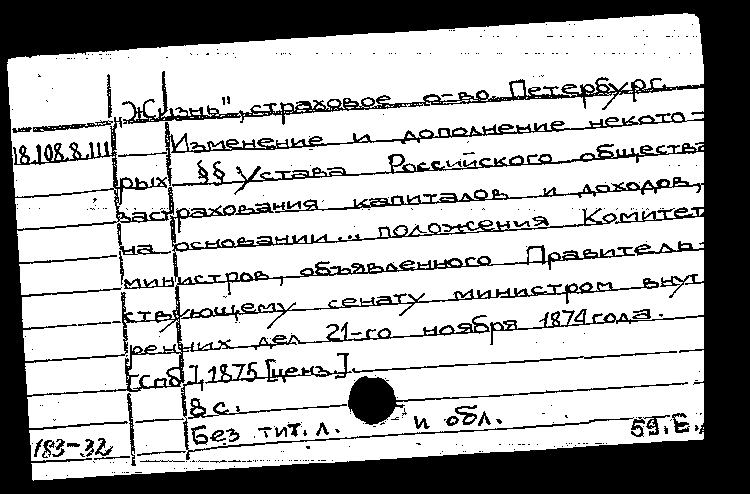 „Жизнь", страховое о-во. Петербург.
18.108.8.111 Изменение и дополнение некото-
рых §§ Устава Российского общества
застрахования капиталов и доходов,
на основании... положения Комитет
министров, объявленного Правитель-
ствующему сенату министром внут
ренних дел 21-го ноября 1874 года.
[Спб.], 1875 [ценз.].
8 с.
Без тит. л. и обл.
183-32 59.Е.